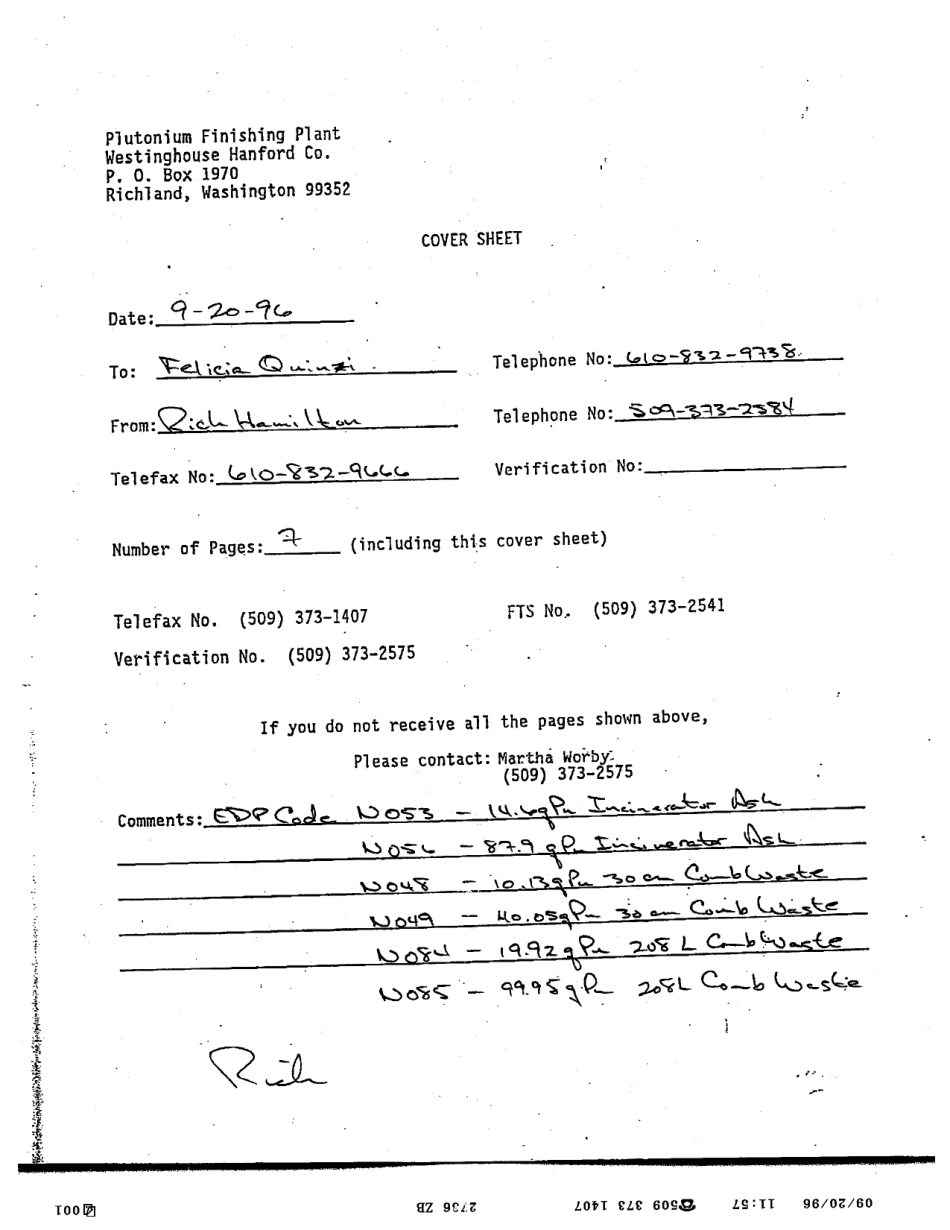 Plutonium Finishing Plant
Westinghouse Hanford Co.
P. O. Box 1970
Richland, Washington 99352
COVER SHEET
Date: 9-20-96
To: Felicia Quinzi Telephone No: 610-832-9738
From: Rich Hamilton Telephone No: 509-373-2584
Telefax No: 610-832-9666 Verification No:
Number of Pages: 7 (including this cover sheet)
Telefax No. (509) 373-1407 FTS No. (509) 373-2541
Verification No. (509) 373-2575
If you do not receive all the pages shown above,
Please contact: Martha Worby
(509) 373-2575
Comments: EDP Code N053 - 14.6gPu Incinerator Ash
N056 - 87.9 gPu Incinerator Ash
N048 - 10.13gPu 30 cm Comb Waste
N049 - 40.05gPu 30 cm Comb Waste
N084 - 19.92gPu 208 L Comb Waste
N085 - 99.95gPu 208L Comb Waste
Rich
09/20/96 11:57 ☎509 373 1407 2736 ZB 001